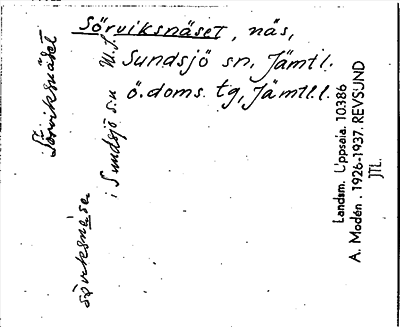 Sörviksnäset, näs,
Sundsjö sn, Jämtl.
ö. doms. tg, Jämtl l.
Sörviksnäset
i Sundsjö s:n
Landsm. Uppsala. 10386
A. Modén. 1926-1937. REVSUND
JTL.